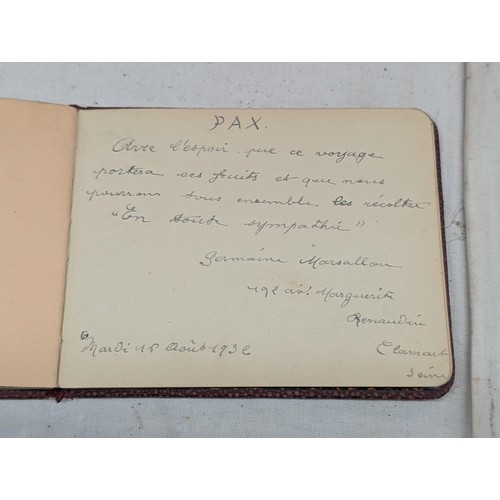 PAX.
Avec l'espoir que ce voyage
portera ses fruits et que nous
pourrons tous ensemble les récolter
"En toute sympathie"
Germaine Marsallon
192 av. Marguerite
Renaudin
Mardi 16 Août 1932 Clamart
Seine